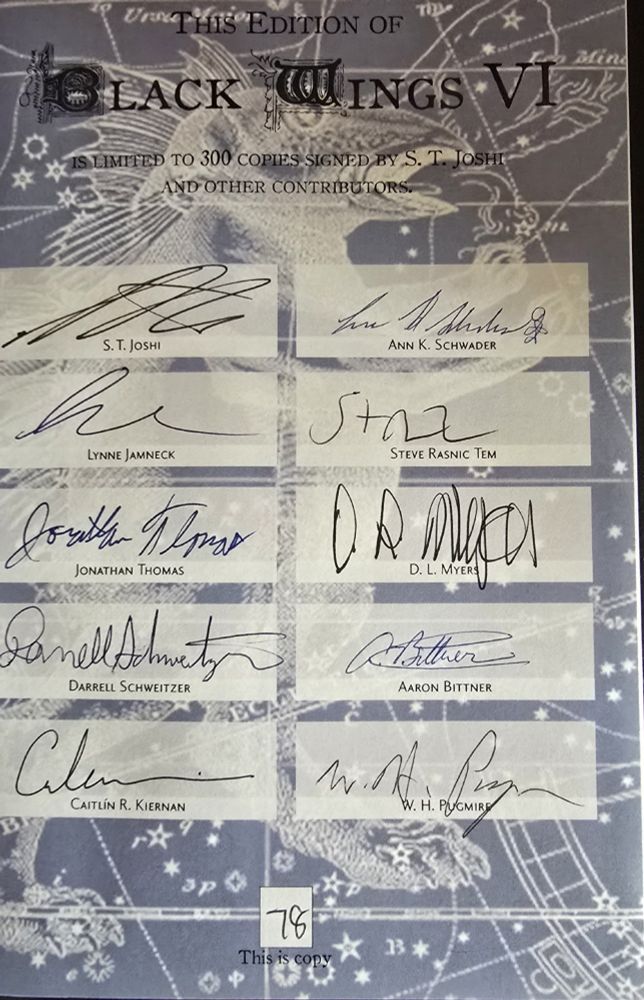 This Edition of
Black Wings VI
is limited to 300 copies signed by S. T. Joshi
and other contributors.
S. T. Joshi
Ann K. Schwader
Lynne Jamneck
Steve Rasnic Tem
Jonathan Thomas
Jonathan Thomas
D. L. Myers
Darrell Schweitzer
Darrell Schweitzer
A. Bittner
Aaron Bittner
Caitlín R. Kiernan
W. H. Pugmire
W. H. Pugmire
78
This is copy